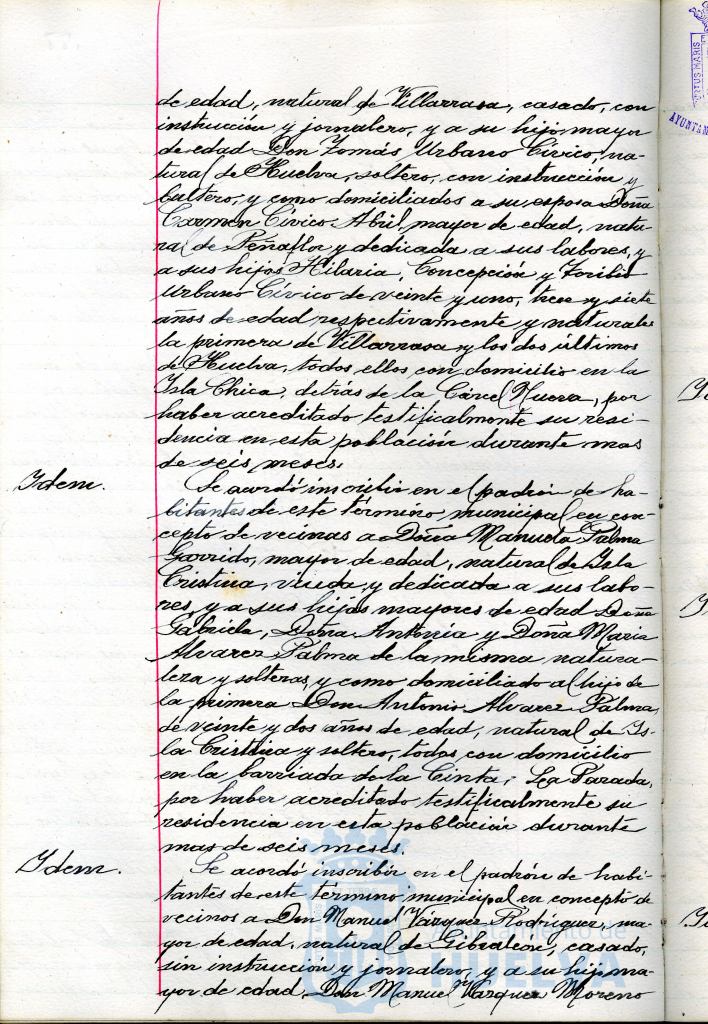 de edad, natural de Villarrasa, casado, con
instrucción y jornalero, y a su hijo mayor
de edad Don Tomás Urbano Cívico, na-
tural de Huelva, soltero, con instrucción y
bultero, y como domiciliados a su esposa Doña
Carmen Cívico Abril, mayor de edad, natu-
ral de Peñaflor y dedicada a sus labores, y
a sus hijos Hilaria, Concepción y Toribio
Urbano Cívico de veinte y uno, trece y siete
años de edad respectivamente y naturales
la primera de Villarrasa y los dos últimos
de Huelva, todos ellos con domicilio en la
Isla Chica, detrás de la Cárcel Nueva, por
haber acreditado testificalmente su resi-
dencia en esta población durante mas
de seis meses.
Idem.
Se acordó inscribir en el padrón de ha-
bitantes de este término municipal en con-
cepto de vecinas a Doña Manuela Palma
Garrido, mayor de edad, natural de Isla
Cristina, viuda y dedicada a sus labo-
res, y a sus hijas mayores de edad Doña
Gabriela, Doña Antonia y Doña Maria
Alvarez Palma de la misma natura-
leza y solteras, y como domiciliado al hijo de
la primera Don Antonio Alvarez Palma,
de veinte y dos años de edad, natural de Is-
la Cristina y soltero, todos con domicilio
en la barriada de la Cinta, Parada,
por haber acreditado testificalmente su
residencia en esta población durante
mas de seis meses.
Idem.
Se acordó inscribir en el padrón de habi-
tantes de este término municipal en concepto de
vecinos a Don Manuel Vázquez Rodríguez, ma-
yor de edad, natural de Gibraleón, casado,
sin instrucción y jornalero, y a su hijo ma-
yor de edad Don Manuel Vázquez Moreno
Ayuntamiento de
HUELVA